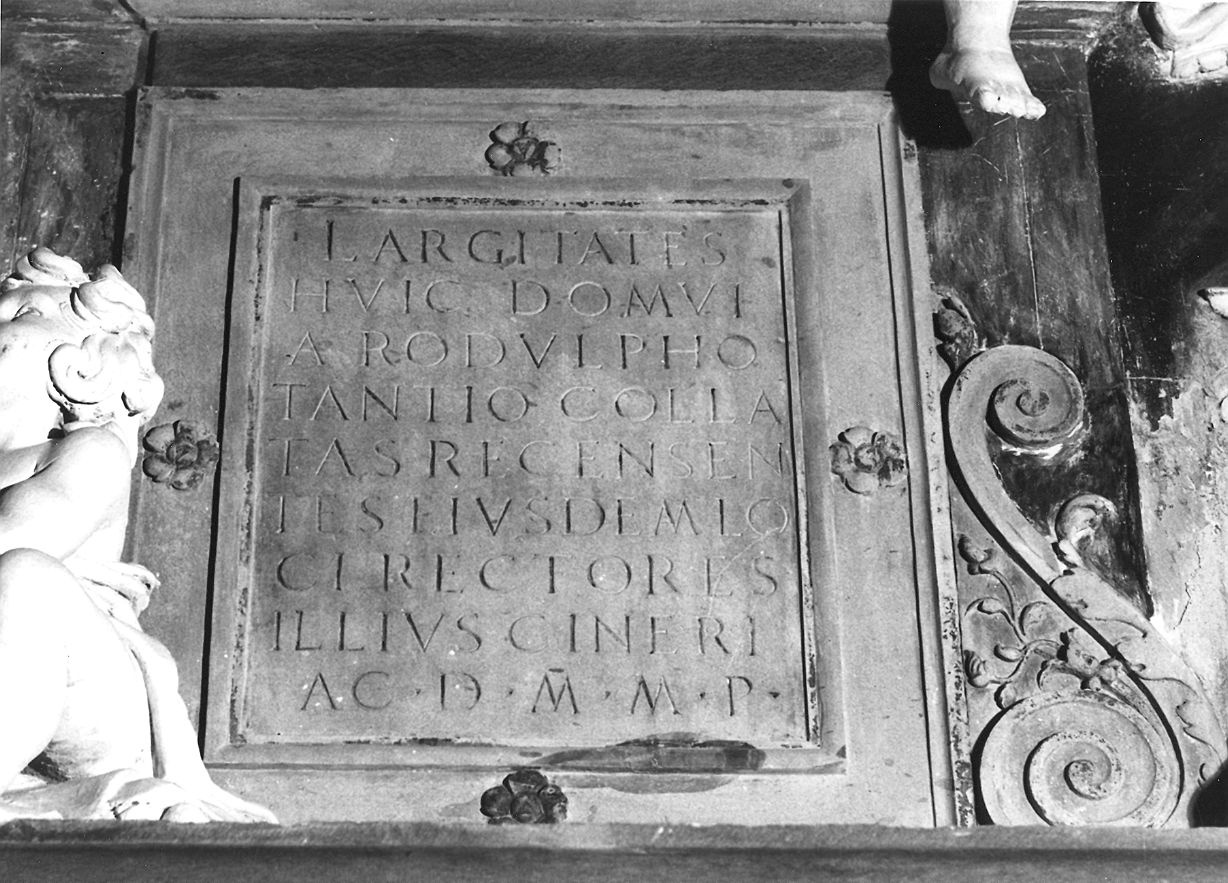 LARGITATES
HVIC DOMVI
A RODVLPHO
TANTIO COLLA
TAS RECENSEN
TES EIVSDEM LO
CI RECTORES
ILLIVS CINERI
AC · D · M̄ · M · P ·